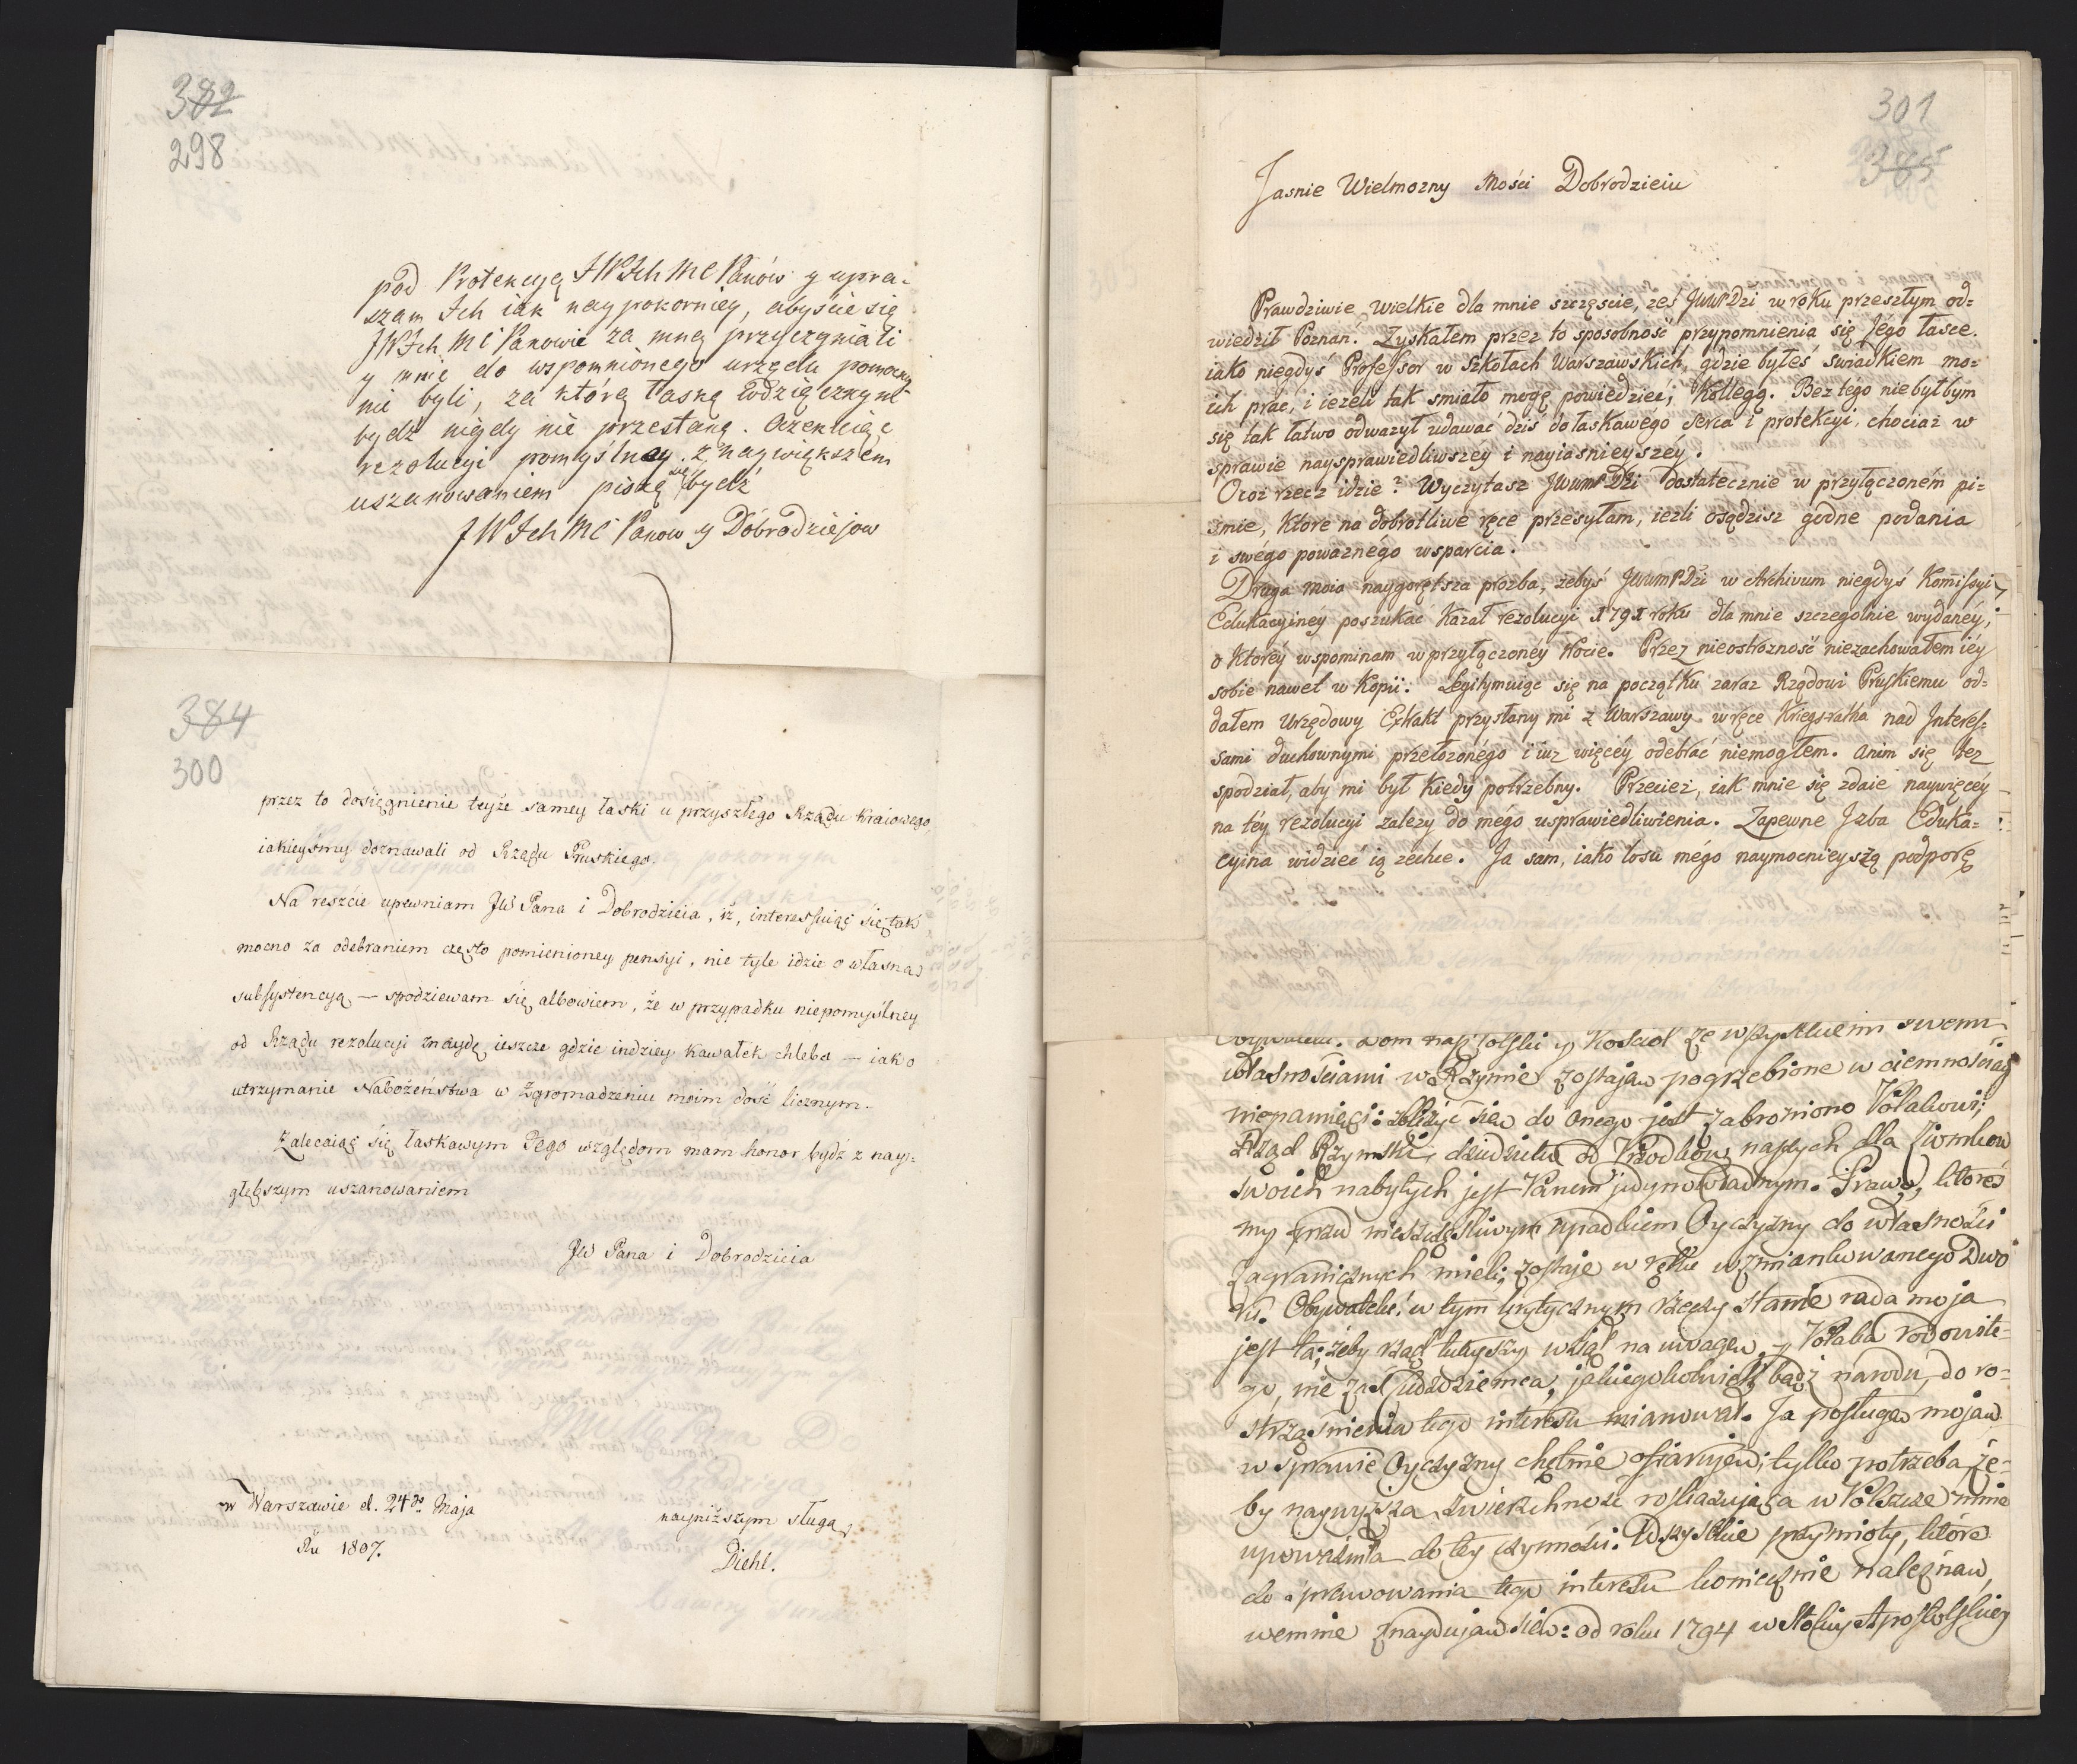 382
298
pod Protekcyą JWIch MC Panów y upra-
szam Ich iak naypokorniey, abyście się
JWIch MC Panowie za mną przyczyniali
y mnie do wspomnionego urzędu pomocny-
mi byli, za którą łaskę wdzięcznym
bydź nigdy nie przestanę. Oczekiiąc
rezolucyi pomyślney z naywiększem
uszanowaniem piszę się bydź
JWIch MC Panow y Dobrodziejow
384
300
przez to dosięgnienie teyże samey łaski u przyszłego Rządu kraiowego,
iakieyśmy doznawali od Rządu Pruskiego.
Na reszcie upewniam JW Pana i Dobrodzieia, iż, interessuiąc się tak
mocno za odebraniem często pomienioney pensyi, nie tyle idzie o własną
subsystencyą — spodziewam się albowiem, że w przypadku niepomyślney
od Rządu rezolucyi znaydę ieszcze gdzie indziey kawałek chleba — iako
utrzymanie Nabożeństwa w Zgromadzeniu moim dość licznym.
Zalecaiąc się łaskawym Jego względom mam honor bydź z nay-
głębszym uszanowaniem
JW Pana i Dobrodzieia
w Warszawie d. 24go Maja
Ru 1807.
nayniższym sługą
Diehl.
301
385
Jasnie Wielmozny Mości Dobrodzieiu
Prawdziwie wielkie dla mnie szczęscie, ześ JWWMPDzi w roku przeszłym od=
wiedził Poznan. Zyskałem przez to sposobność przypomnienia się Jégo łasce.
iako niegdyś Professor w Szkołach Warszawskich, gdzie byłeś swiadkiem mo=
ich prac, i iezeli tak smiało mogę powiedzieć, Kollegą. Bez tégo niebyłbym
się tak łatwo odwazył udawać dziś do łaskawégo serca i protekcyi, chociaz w
sprawie naysprawiedliwszéy i nayiasnieyszéy.
Ocoz rzecz idzie? Wyczytasz JWWMPDzi dostatecznie w przyłączoném pi=
smie, które na dobrotliwe ręce przesyłam, iezli osądzisz godne podania
i swégo powaznégo wsparcia.
Druga moia naygorętsza prozba, żebyś JWWMPDzi w Archivum niegdyś Kommissyi
Edukacyinéy poszukać kazał rezolucyi 1791 roku dla mnie szczegolnie wydanéy,
o któréy wspominam w przyłączonéy Nocie. Przez nieostrozność niezachowałem iéy
sobie nawet w Kopii. Legitymuiąc się na początku zaraz Rządowi Pruskiemu od=
dałem Urzędowy Extrakt przysłany mi z Warszawy w ręce Kriegsratha nad Interes=
sami duchownymi przełozonégo i iuz więcéy odebrać niemogłem. Anim się tez
spodział, aby mi był kiedy potrzebny. Przeciez, iak mnie się zdaie naywięcéy
na téy rezolucyi zalezy do mégo usprawiedliwienia. Zapewne Jzba Eduka=
cyina widzieć ią zechce. Ja sam, iako losu mégo naymocnieyszą podporę
Obywatelu. Dom nasz Polski y Kosciol ze wszystkiemi swemi
własnościami w Rzymie zostają pogrzebione w ciemnościach
niepamięci: zbliżyć się do onego jest zabroniono Polakowi;
Rząd Rzymski, dziedzictw od Przodków naszych dla Ziomków
swoich nabytych jest Panem jedynowładnym. Prawo, któreś
my przed nieszczęśliwym upadkiem Oyczyzny do własności
zagranicznych mieli, zostaje w ręku wzmiankowanego Dwo
ru. Obywatelu! w tym krytycznym rzeczy stanie rada moja
jest ta; żeby rząd tuteyszy wziął na uwagę, y Polaka rodowite=
go, nie zaś Cudzoziemca, jakiegokolwiek bądź narodu, do ro=
strząśnienia tego interesu mianował. Ja posługę moją
w sprawie Oyczyzny chętnie ofiaruję; tylko potrzeba że=
by naywyższa zwierzchność roskazująca w Polszcze mnie
upoważniła do tey czynności. Wszystkie przymioty, które
do sprawowania tego interesu koniecznie należną,
wemnie znaydują się: od roku 1794 w Stolicy Apostolskiey